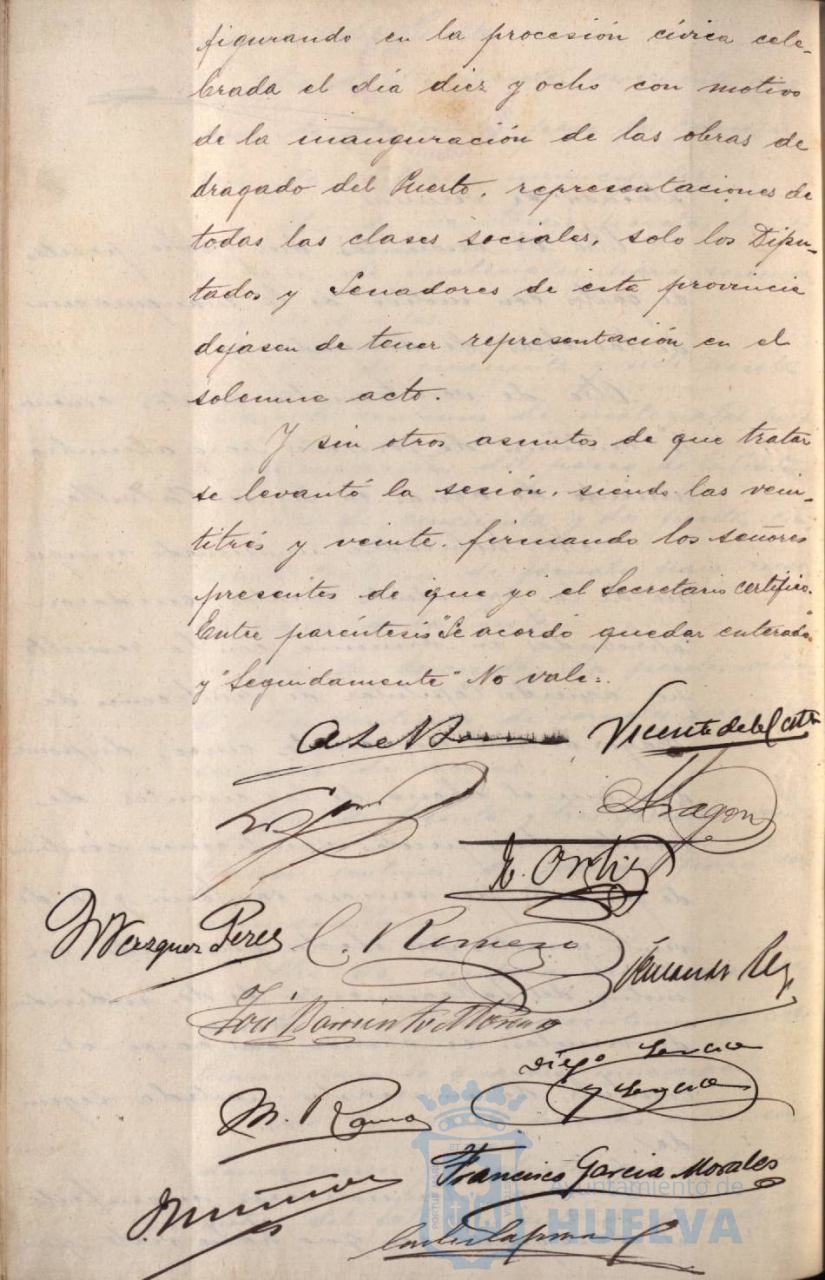 figurando en la procesión cívica cele-
brada el día diez y ocho con motivo
de la inauguración de las obras de
dragado del Puerto, representaciones de
todas las clases sociales, solo los Dipu-
tados y Senadores de esta provincia
dejasen de tener representación en el
solemne acto.
Y sin otros asuntos de que tratar
se levantó la sesión, siendo las vein-
titrés y veinte, firmando los señores
presentes de que yo el Secretario certifico.
Entre paréntesis "Se acordó quedar enterado"
y "Seguidamente" No vale.
Vicente de la
Aragon
E. Ortiz
M Vazquez Perez C. Romero
José Barrientos Moreno
Diego
M. Romo
Francisco Garcia Morales
Ayuntamiento de
HUELVA